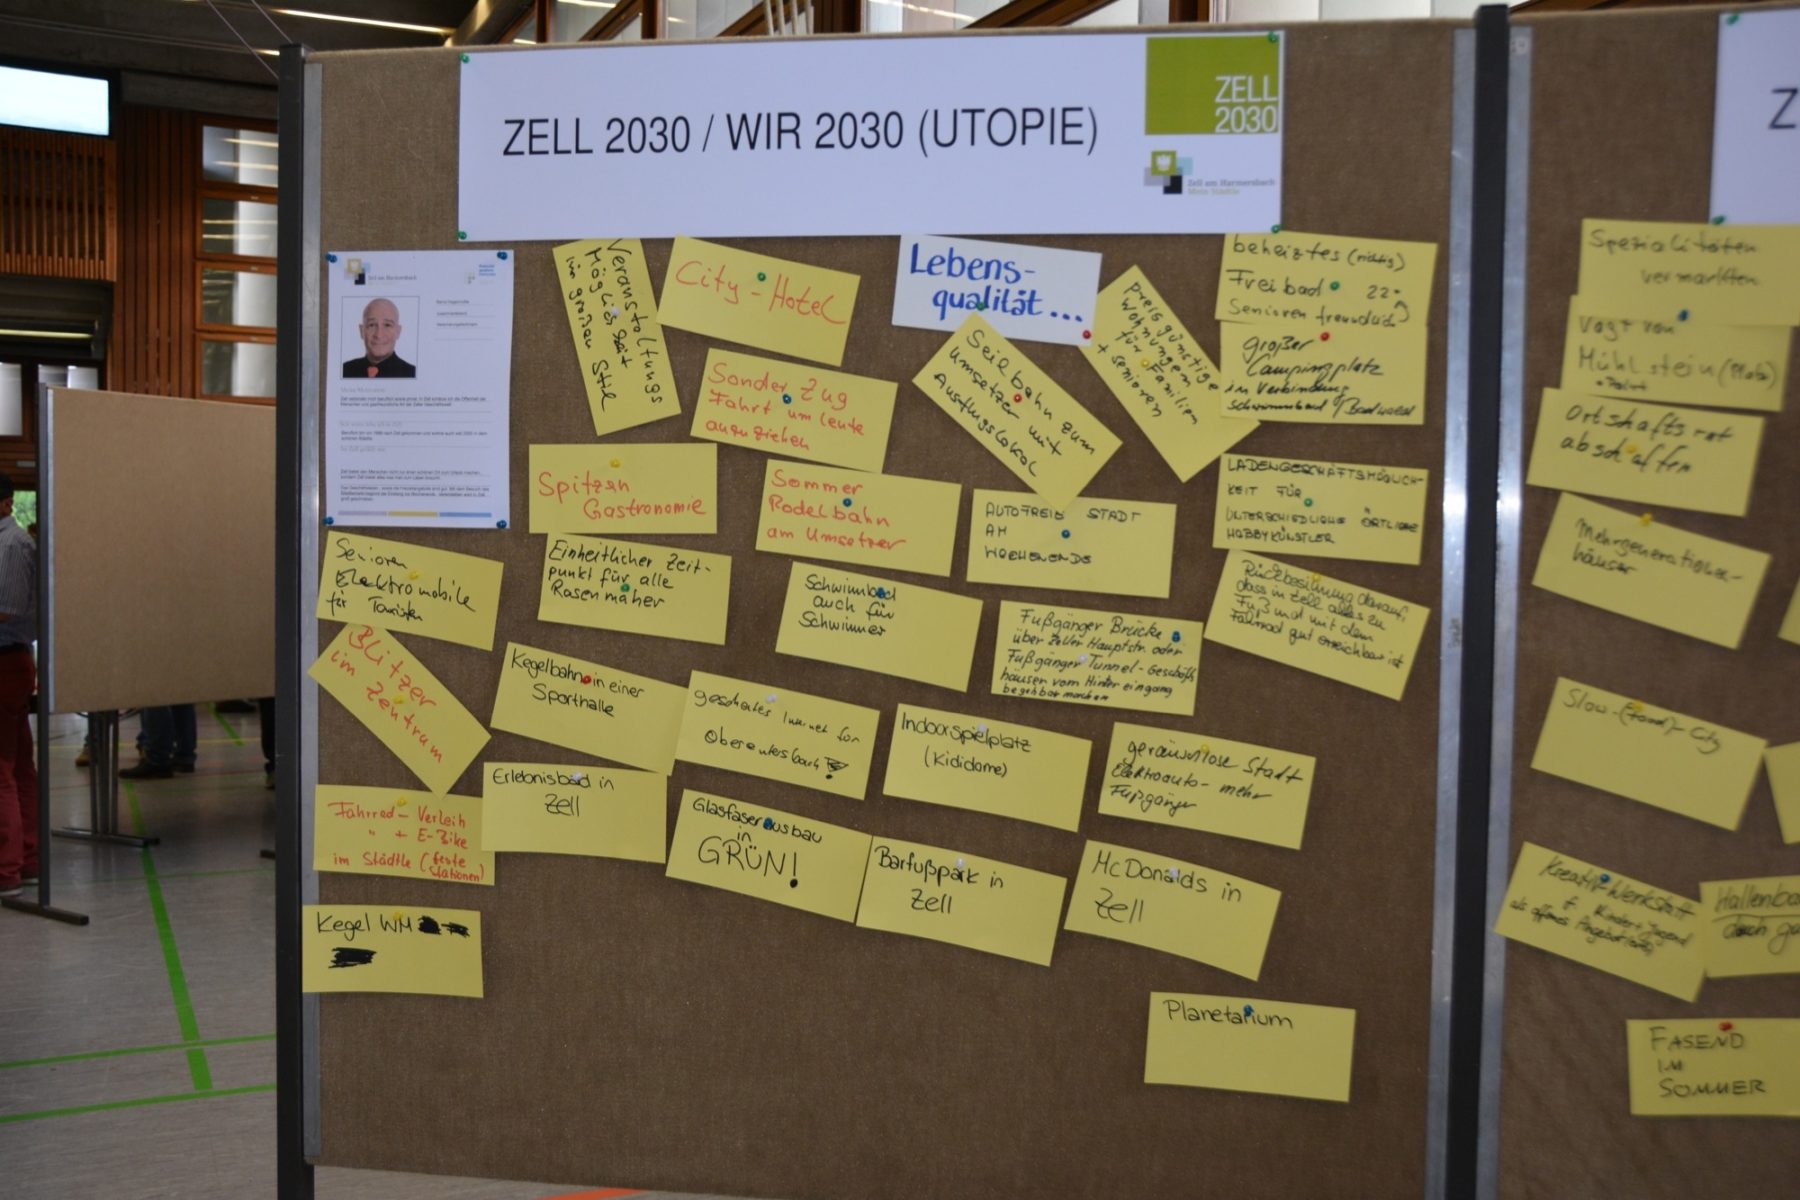 ZELL 2030 / WIR 2030 (UTOPIE)
ZELL
2030
Zell am Harmersbach
Mein Städtle
Zell am Harmersbach
Veranstaltungs
Möglichkeit
im großen Stile
City-Hotel
Lebens-
qualität...
preisgünstige
Wohnungen
für Familien
+ Senioren
beheiztes (richtig)
Freibad 22°
Senioren freundlich
großer
Campingplatz
in Verbindung
Schwimmbad / Badwald
Sonder Zug
Fahrt um leute
anzuziehen
Seilbahn zum
Umsetzer mit
Ausflugslokal
Spitzen
Gastronomie
Sommer
Rodelbahn
am Umsetzer
AUTOFREIE STADT
AM
WOCHENENDE
LADENGESCHÄFTSMÖGLICH-
KEIT FÜR
UNTERSCHIEDLICHE ÖRTLICHE
HOBBYKÜNSTLER
Senioren
Elecktromobile
für Touristen
Einheitlicher Zeit-
punkt für alle
Rasenmäher
Schwimmbad
auch für
Schwimmer
Fußgänger Brücke
über Zeller Hauptstr. oder
Fußgänger Tunnel-Geschäfts
häuser vom Hintereingang
begehbar machen
Rückbesinnung darauf,
dass in Zell alles zu
Fuß und mit dem
Fahrrad gut erreichbar ist
Blitzer
im Zentrum
Kegelbahn in einer
Sporthalle
Internet for
Indoorspielplatz
(Kididome)
geräuschlose Stadt
Elektroauto- mehr
Fußgänger
Fahrrad-Verleih
" + E-Bike
im Städtle (feste
Stationen)
Erlebnisbad in
Zell
Glasfaserausbau
in
GRÜN!
Barfußpark in
Zell
McDonalds in
Zell
Kegel WM
Planetarium
Z
Spezialitäten
vermarkten
Vogt von
Mühlstein
Ortschaftsrat
abschaffen
Mehrgenerationen-
häuser
Slow-(food)-City
Kreativ-Werkstatt
f. Kinder + Jugend
als offenes Angebot
Hallenba
doch
FASEND
IM
SOMMER